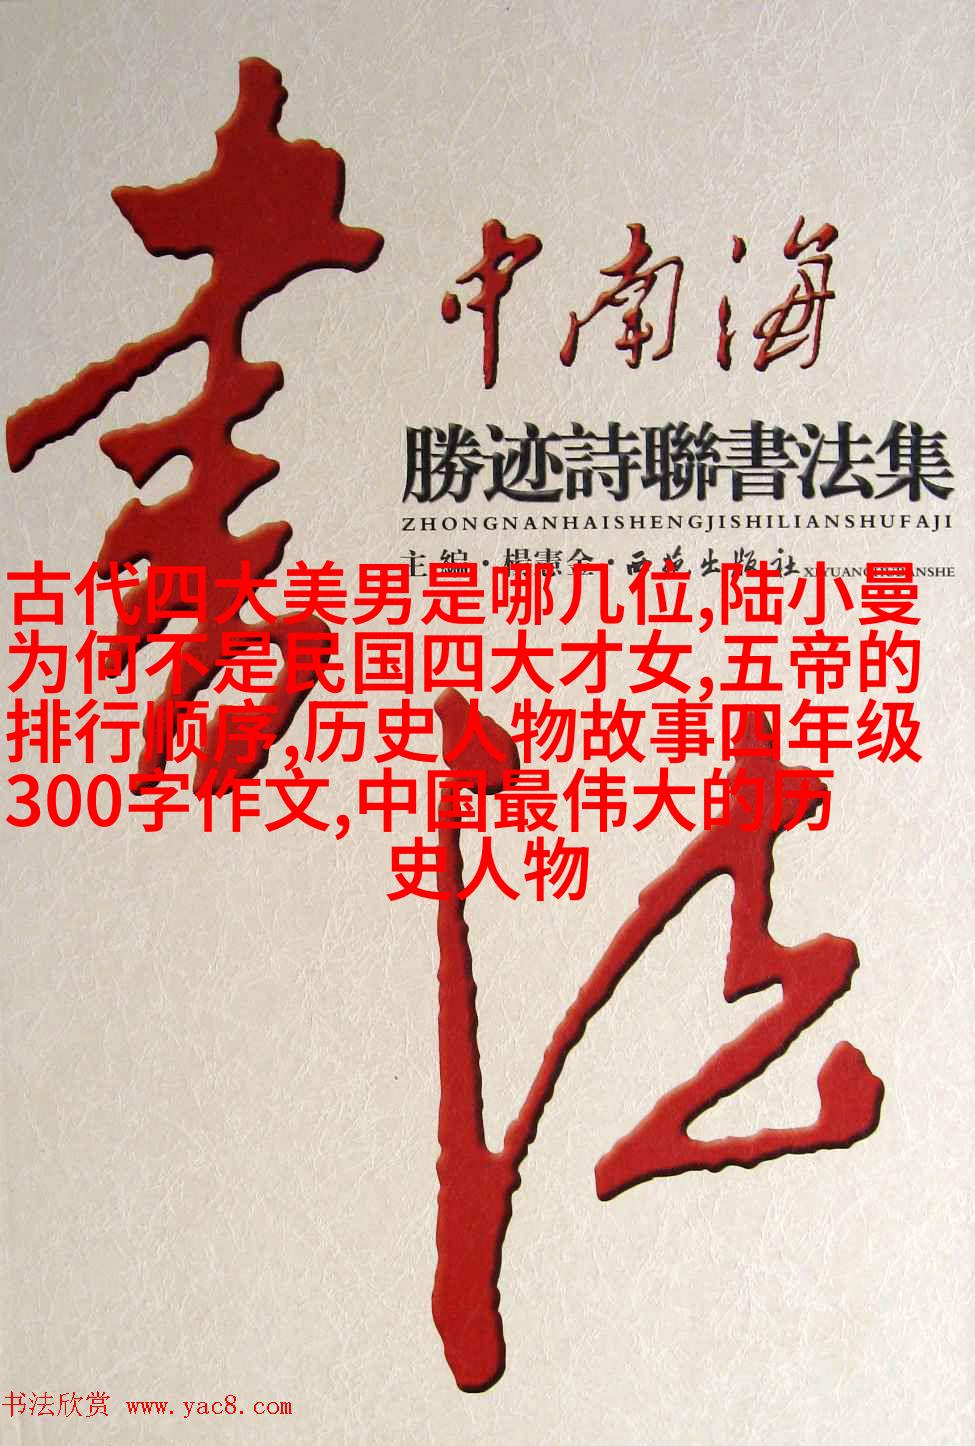 書法
中南海
勝迹詩聯書法集
ZHONGNANHAISHENGJISHILIANSHUFAJI
主编·楊憲金·西苑出版社
古代四大美男是哪几位,陆小曼
为何不是民国四大才女,五帝的
排行顺序,历史人物故事四年级
300字作文,中国最伟大的历
史人物
书法欣赏 www.yac8.com